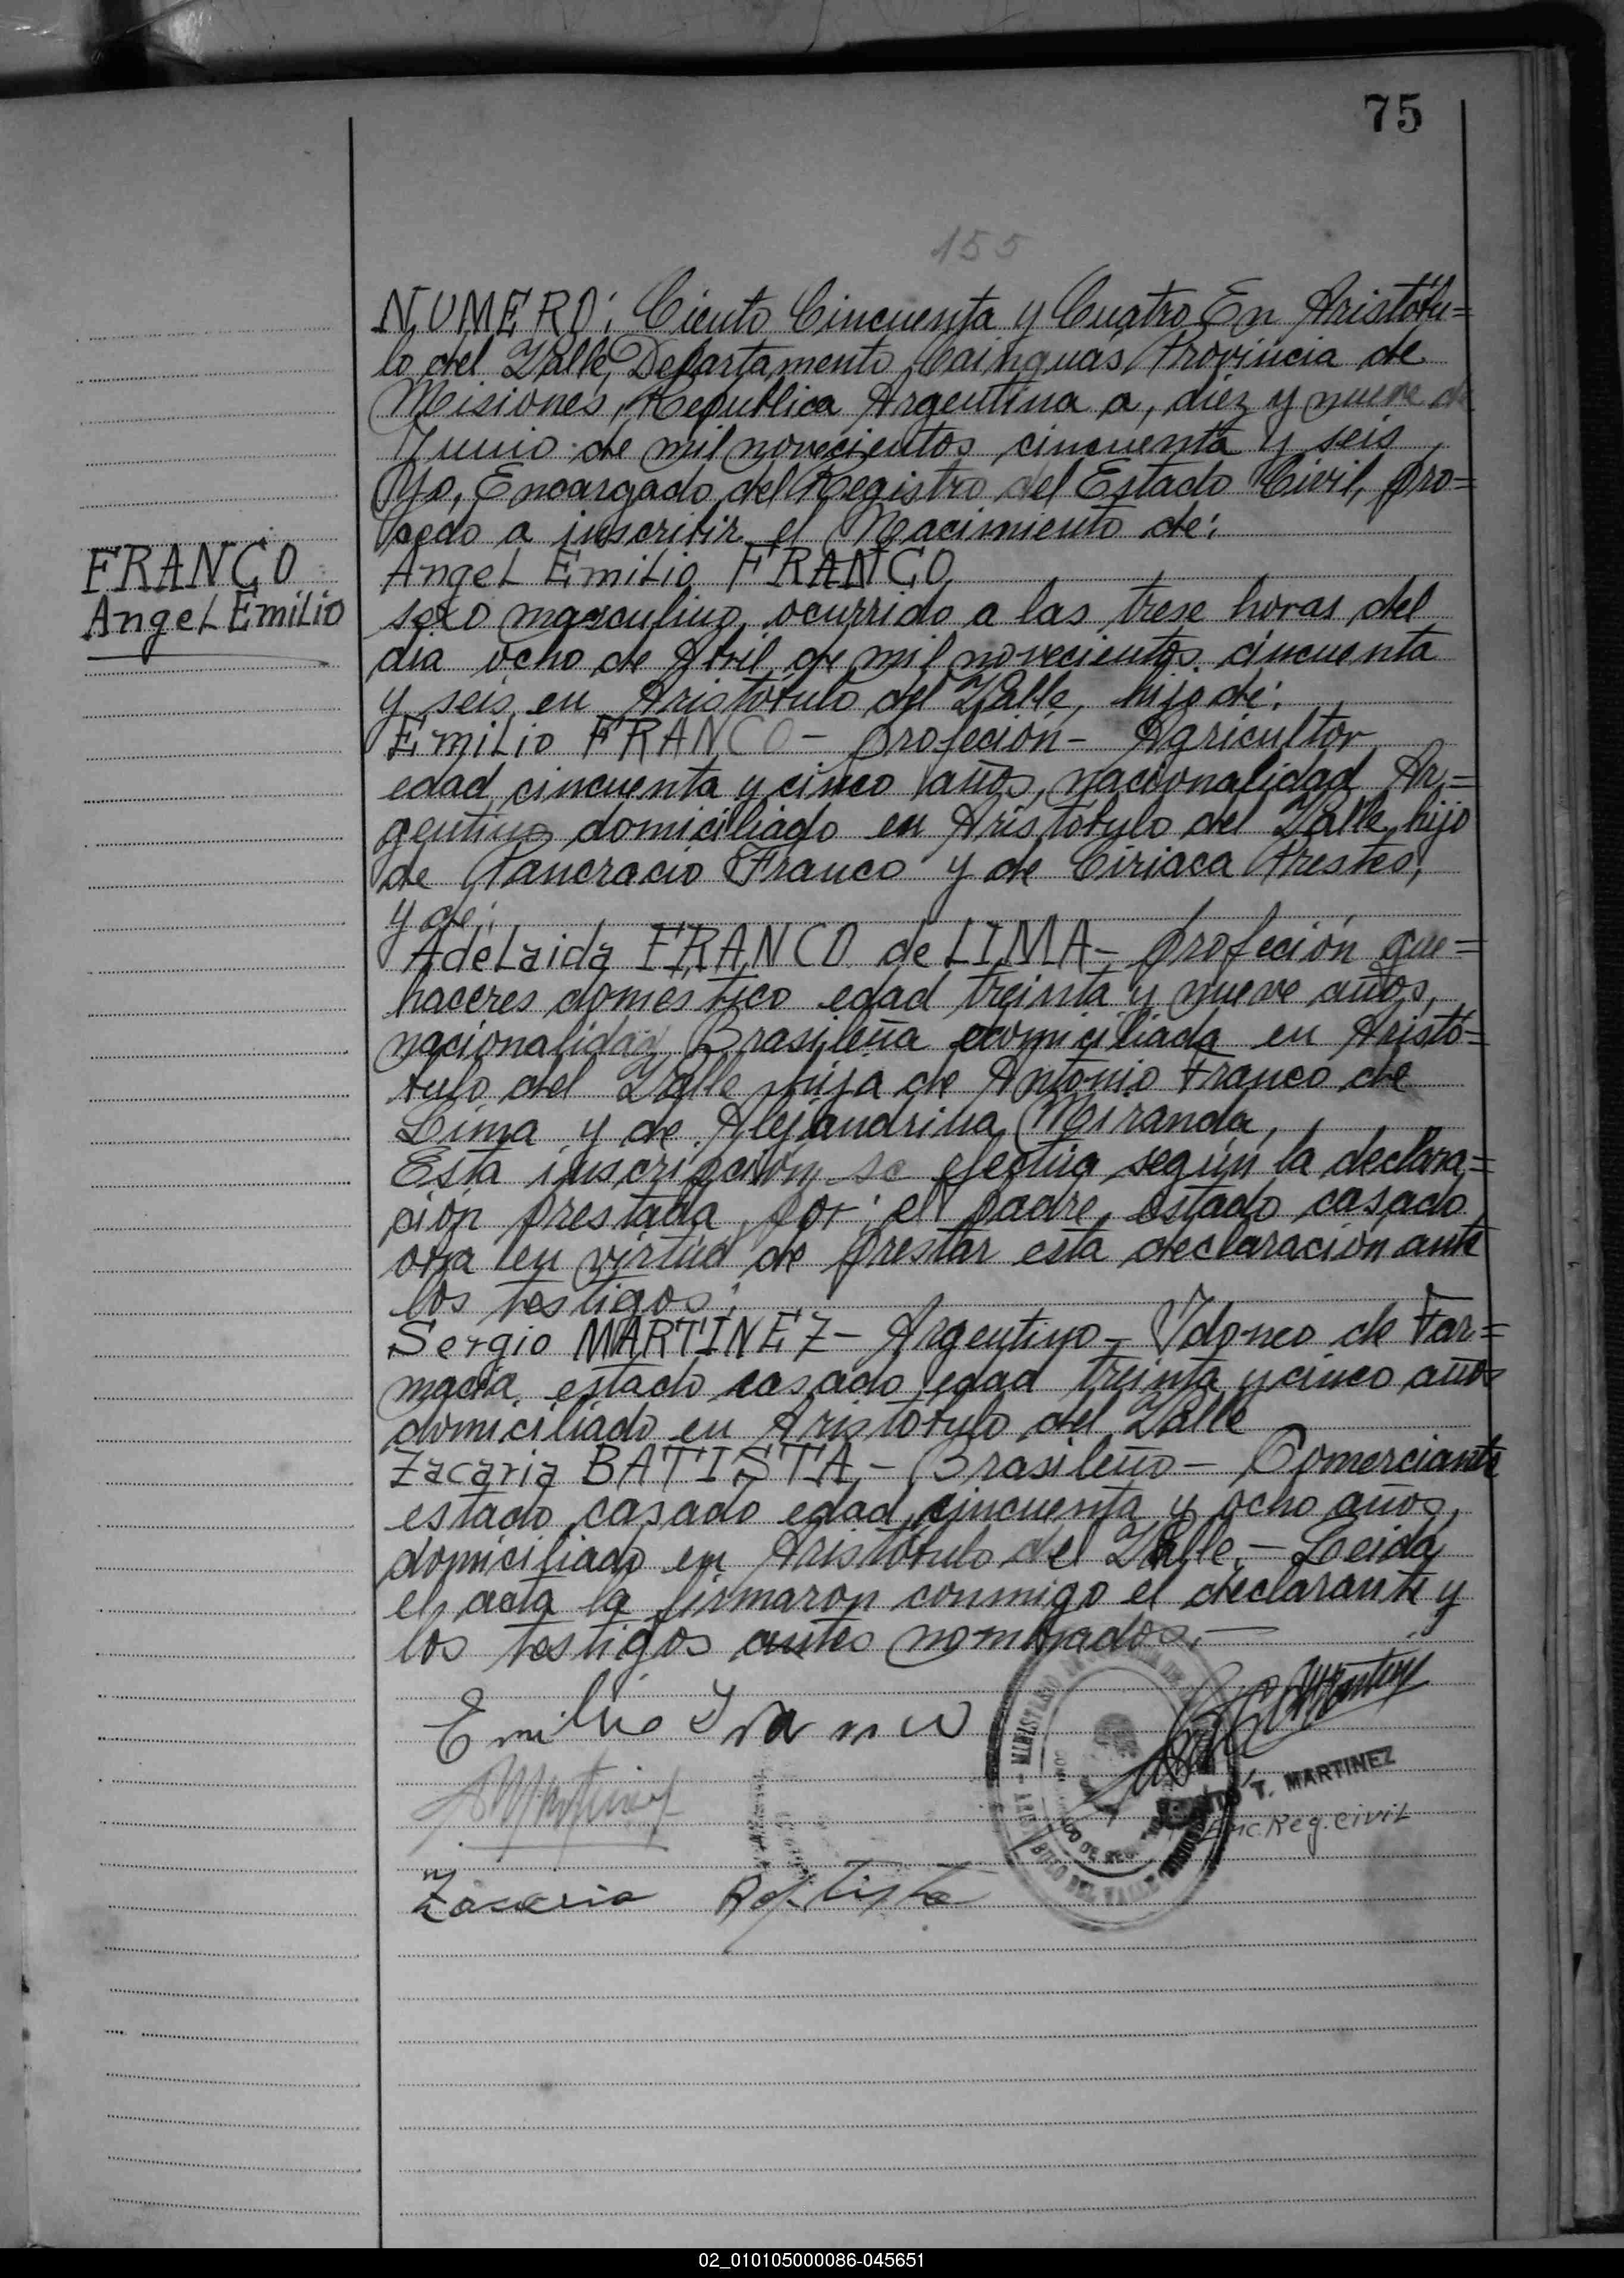 75
155
NUMERO: Ciento Cincuenta y Cuatro En Aristótu=
lo del Valle, Departamento Cainguas, Provincia de
Misiones, Republica Argentina a, diez y nueve de
Junio de mil novecientos cincuenta y seis,
Yo, Encargado del Registro del Estado Civil, pro=
cedo a inscribir el Nacimiento de:
FRANCO
Angel Emilio
Angel Emilio FRANCO,
sexo masculino, ocurrido a las trese horas del
dia ocho de Abril de mil novecientos cincuenta
y seis en Aristótulo del Valle, hijo de:
Emilio FRANCO - profeción - Agricultor
edad, cincuenta y cinco años, nacionalidad Ar=
gentino domiciliado en Aristotulo del Valle, hijo
de Pancracio Franco y de Ciriaca Prestes,
y de:
Adelaida FRANCO de LIMA - profeción que=
haceres domestico edad treinta y nueve años,
nacionalidad Brasileña domiciliada en Aristó=
tulo del Valle hija de Antonio Franco de
Lima y de Alejandrina Miranda,
Esta inscripción se efectúa según la declara=
ción prestada por: el padre, estado casado
ora en virtud de prestar esta declaración ante
los testigos:
Sergio MARTINEZ - Argentino - Idoneo de Far=
macia estado casado edad treinta y cinco años
domiciliado en Aristótulo del Valle
Zacaria BATISTA - Brasileño - Comerciante
estado casado edad cincuenta y ocho años,
domiciliado en Aristótulo del Valle. - Leida
el acta la firmaron conmigo el declarante y
los testigos antes nombrados. -
Emilio Franco
SMartinez
T. MARTINEZ
Enc. Reg. Civil
Zacaria Batista
02_010105000086-045651